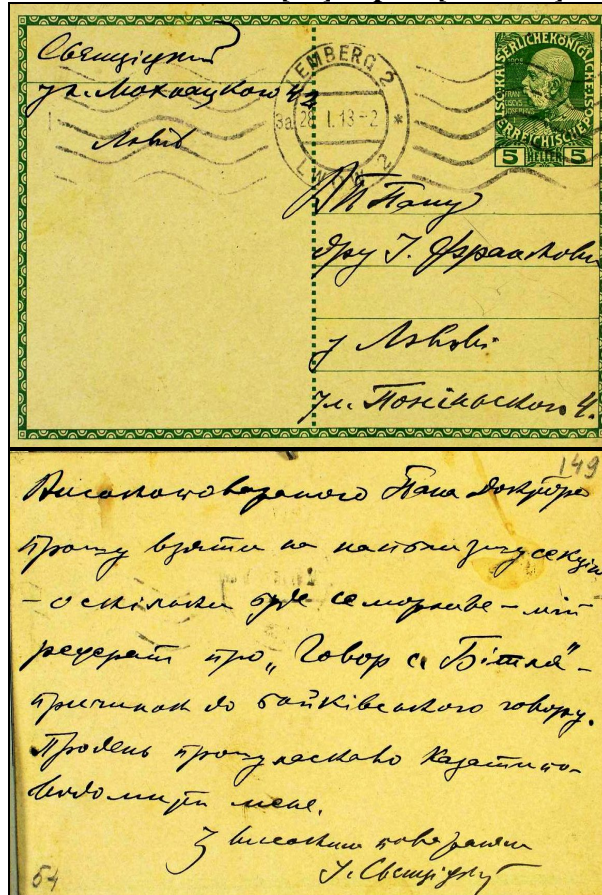 Свєнціцкий
ул. Мохнацкого 42
Львів
LEMBERG 2
3a 28 I. 13 -2 *
LWÓW 2
KAISERLICHEKÖNIGLICHE
ÖSTERREICHISCHE
1908
5 HELLER 5
ВП Пану
дру І. Франкови
у Львові
ул. Понїньского 4.
149
Високоповажаного Пана Доктора
прошу взяти на найближчу секцію
– оскільки буде се можливе – мій
реферат про „Говор с. Бітля" –
причинок до бойківського говору.
Про день прошу ласкаво казати по-
відомити мене.
З високим поважанєм
І. Свєнціцкий
54